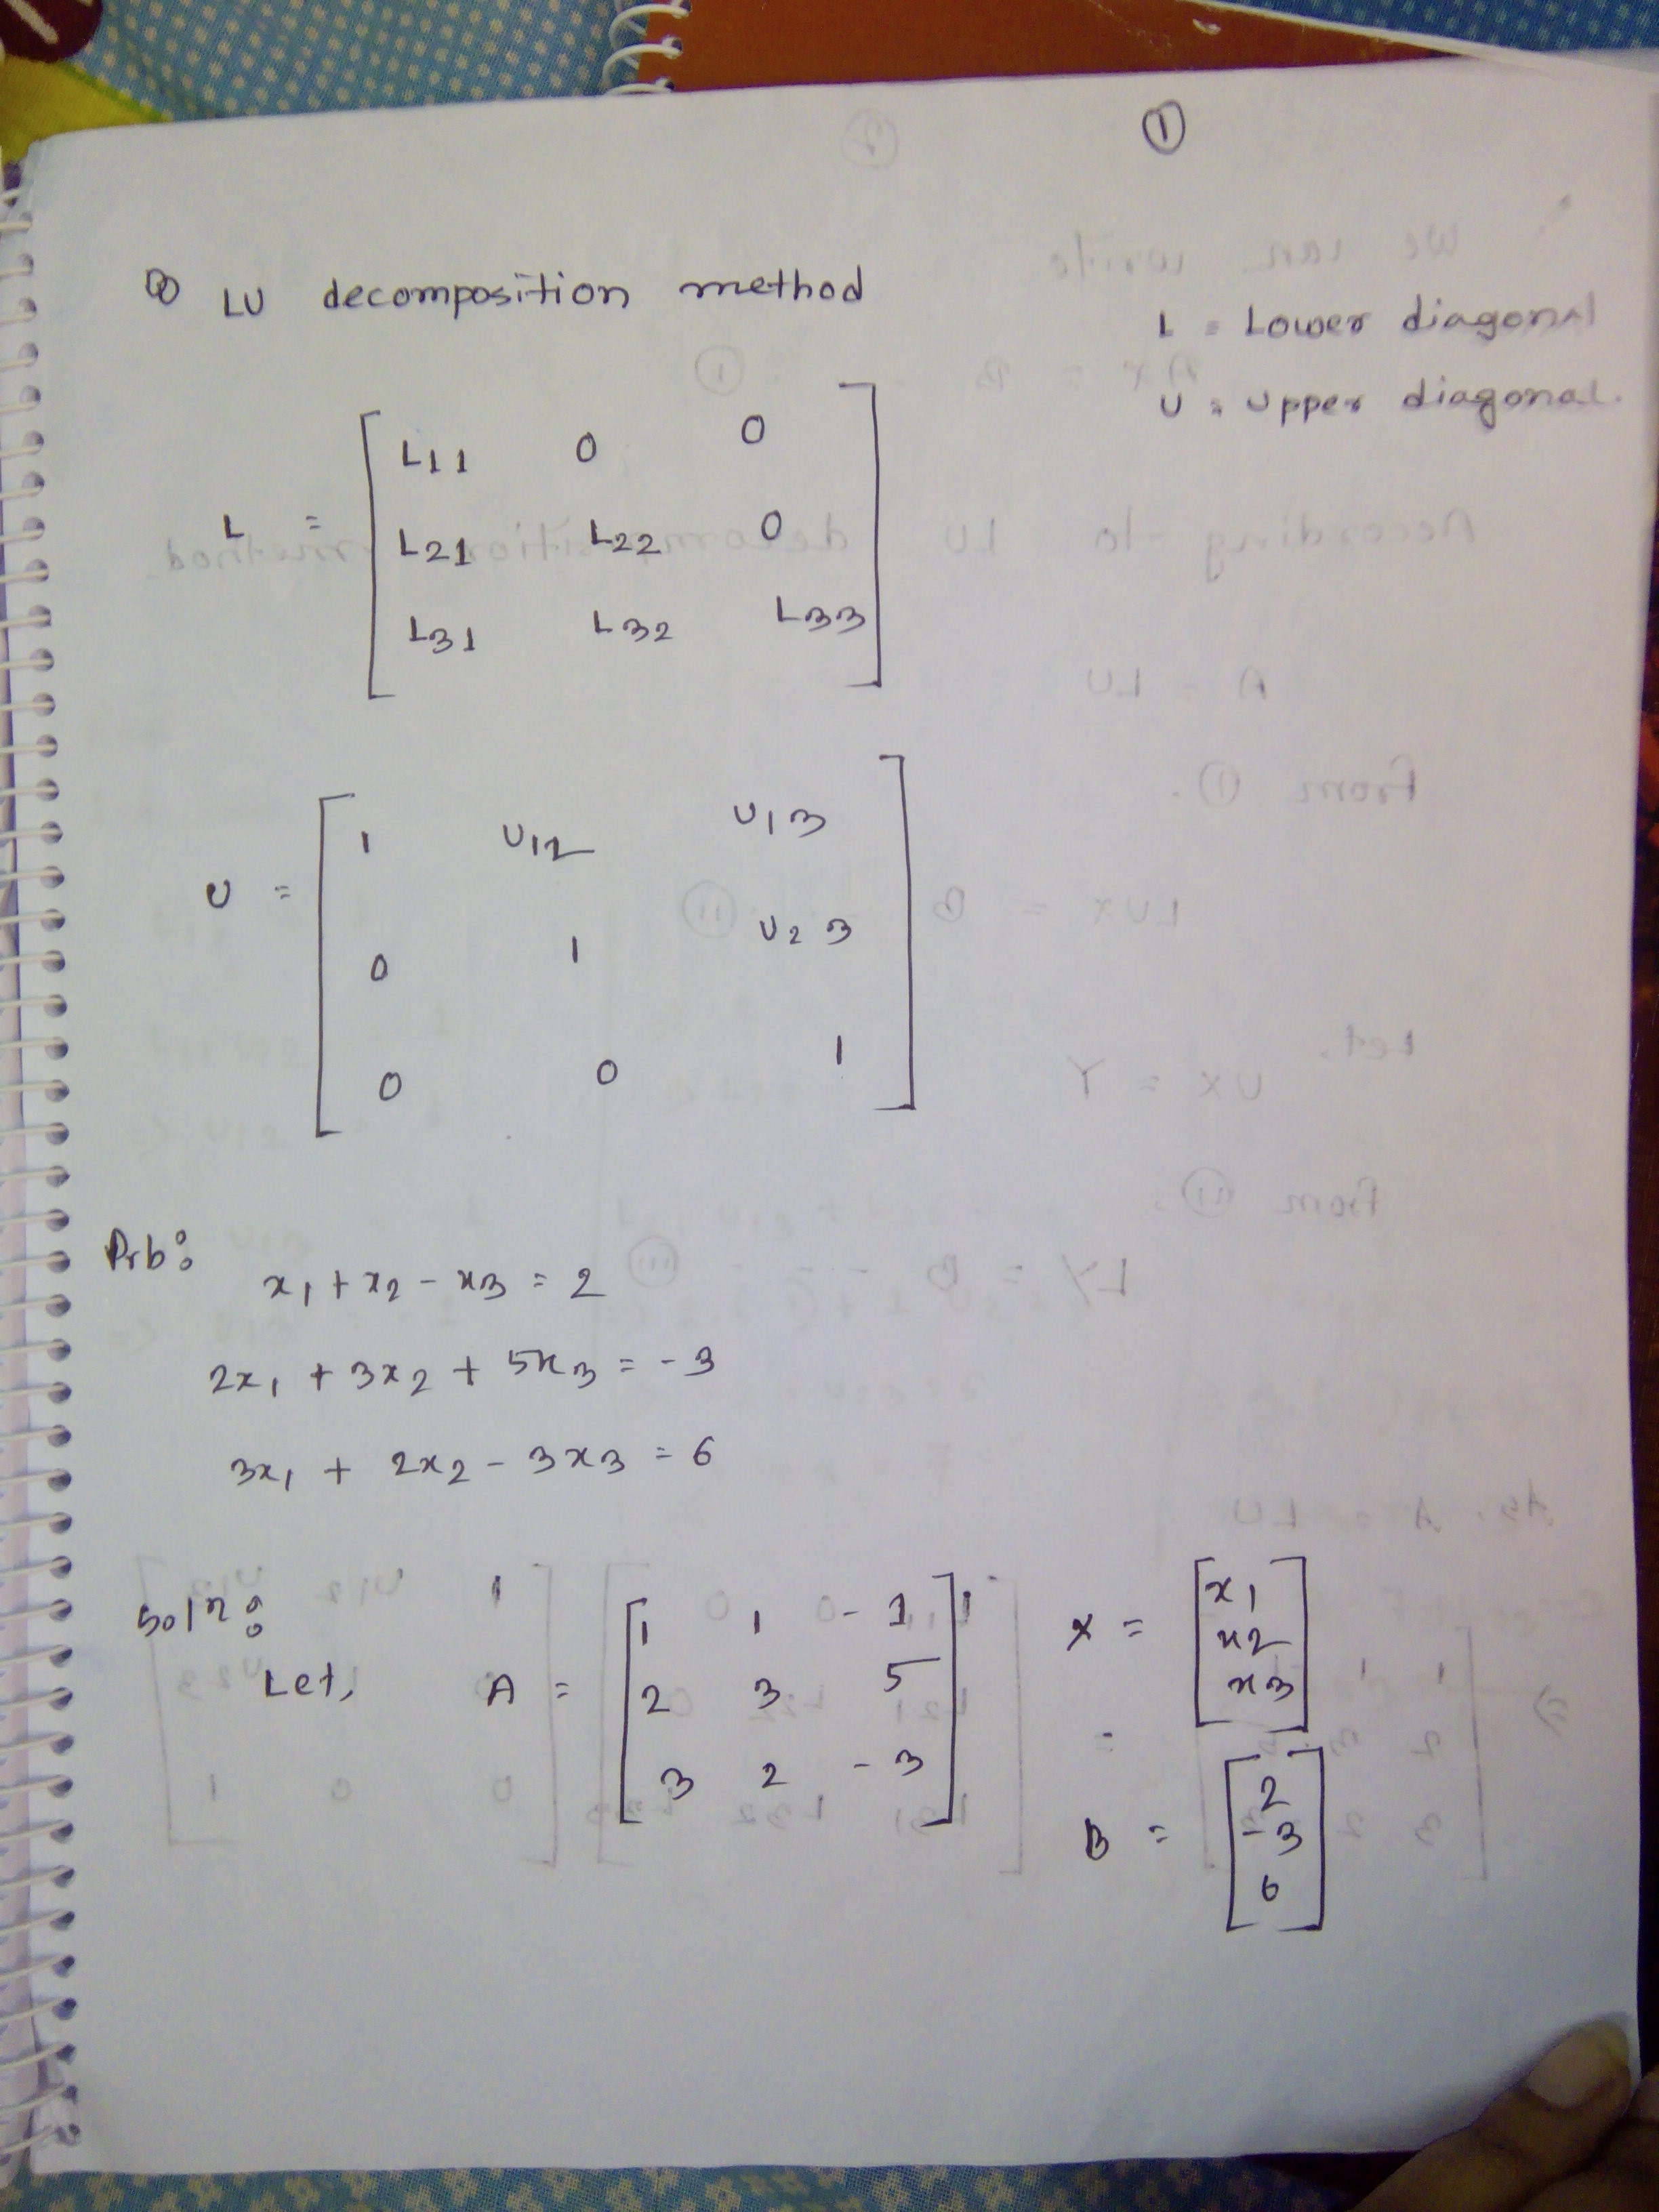 ①
LU decomposition method
L = Lower diagonal
U = Upper diagonal.
L = [ L11 0 0
L21 L22 0
L31 L32 L33 ]
U = [ 1 U12 U13
0 1 U23
0 0 1 ]
Prb:
x1 + x2 - x3 = 2
2x1 + 3x2 + 5x3 = -3
3x1 + 2x2 - 3x3 = 6
Soln:
Let, A = [ 1 1 -1
2 3 5
3 2 -3 ] ;
X = [ x1
x2
x3 ]
B = [ 2
-3
6 ]